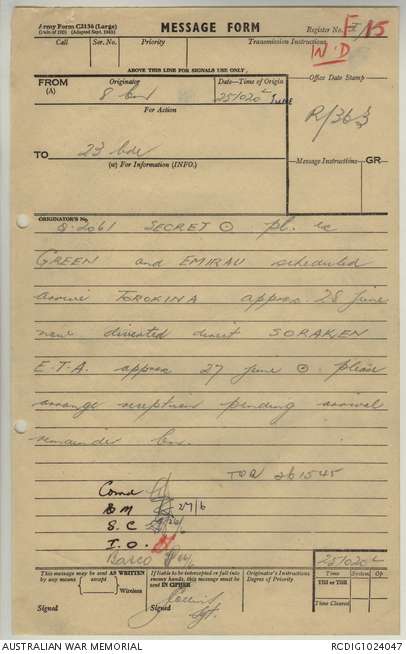 Army Form C2136 (Large)
MESSAGE FORM
Register No.
F 15
Call Ser. No. Priority Transmission Instructions
N.D
ABOVE THIS LINE FOR SIGNALS USE ONLY.
FROM
(A)
Originator
Date-Time of Origin
Office Date Stamp
8 bn
251020 L JUNE
R/36
For Action
TO
23 bde
(W) For Information (INFO.)
Message Instructions GR
ORIGINATOR'S No.
Q.2061 SECRET ⊙ pl. ex
GREEN and EMIRAU scheduled
arrive TOROKINA approx 28 june
now diverted direct SORAKEN
E.T.A. approx 27 june ⊙ please
arrange reception pending arrival
remainder bn.
TOR 261545
Comd
B M 27/6
S. C
I. O.
Barco
251020L
This message may be sent AS WRITTEN
by any means (except) Wireless
If liable to be intercepted or fall into
enemy hands, this message must be
sent IN CIPHER
Originator's Instructions
Degree of Priority
Time System Op
THI or TOR
Time Cleared
Signed
Signed
Sgt.
AUSTRALIAN WAR MEMORIAL
RCDIG1024047